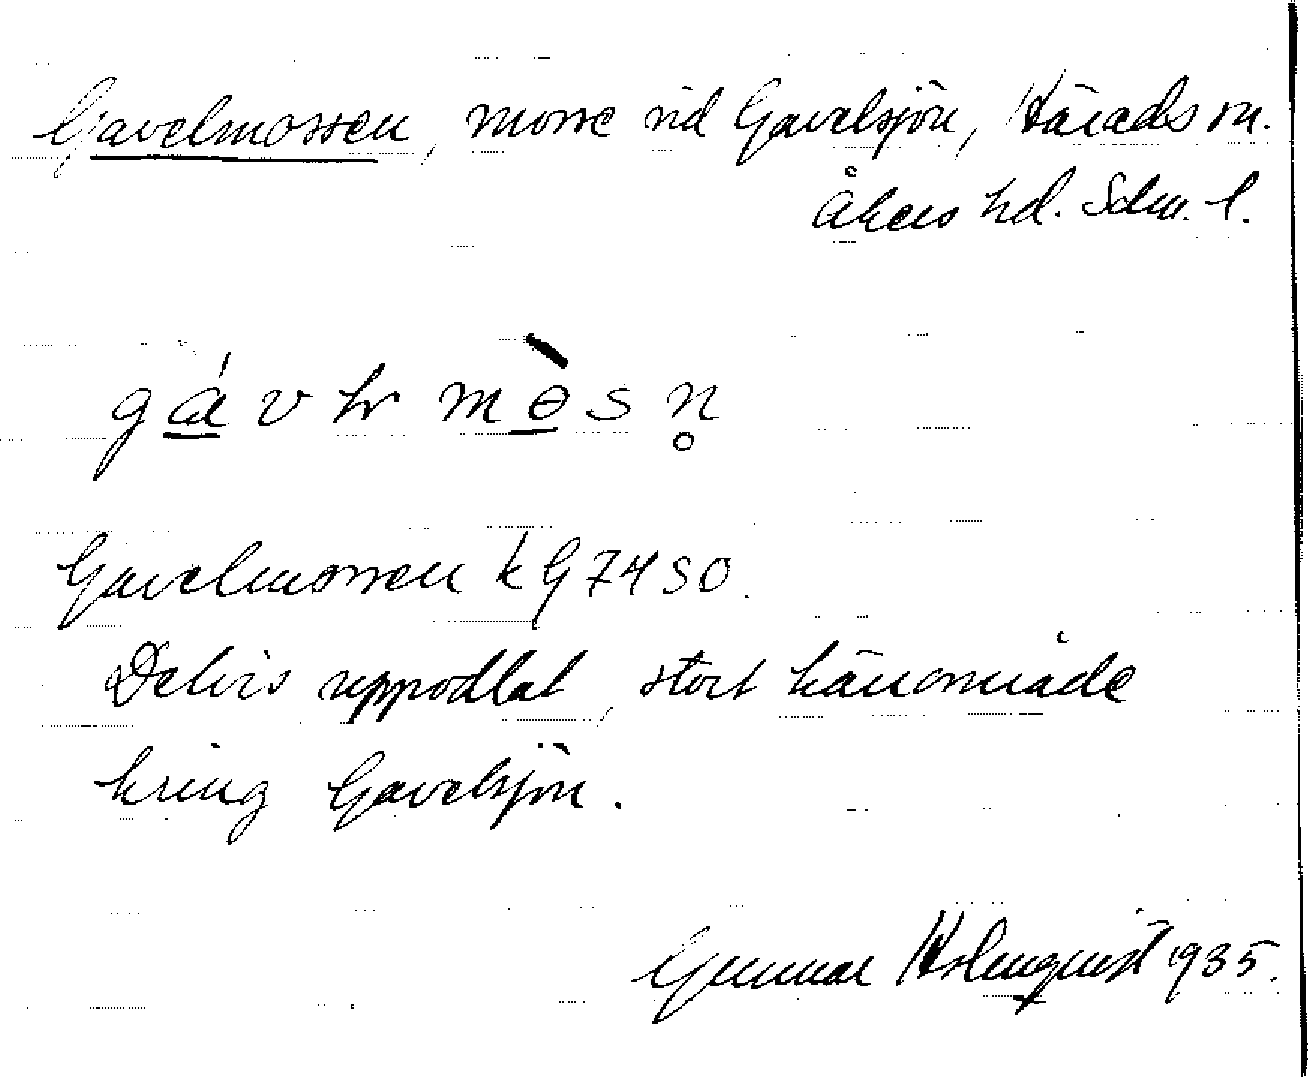 Gavelmossen, mosse vid Gavelsjön, Härads sn.
Åkers hd. Sdm. l.
Gavelmossen kG 74 SO.
Delvis uppodlat, stort kärrområde
kring Gavelsjön.
Gunnar Holmquist 1935.